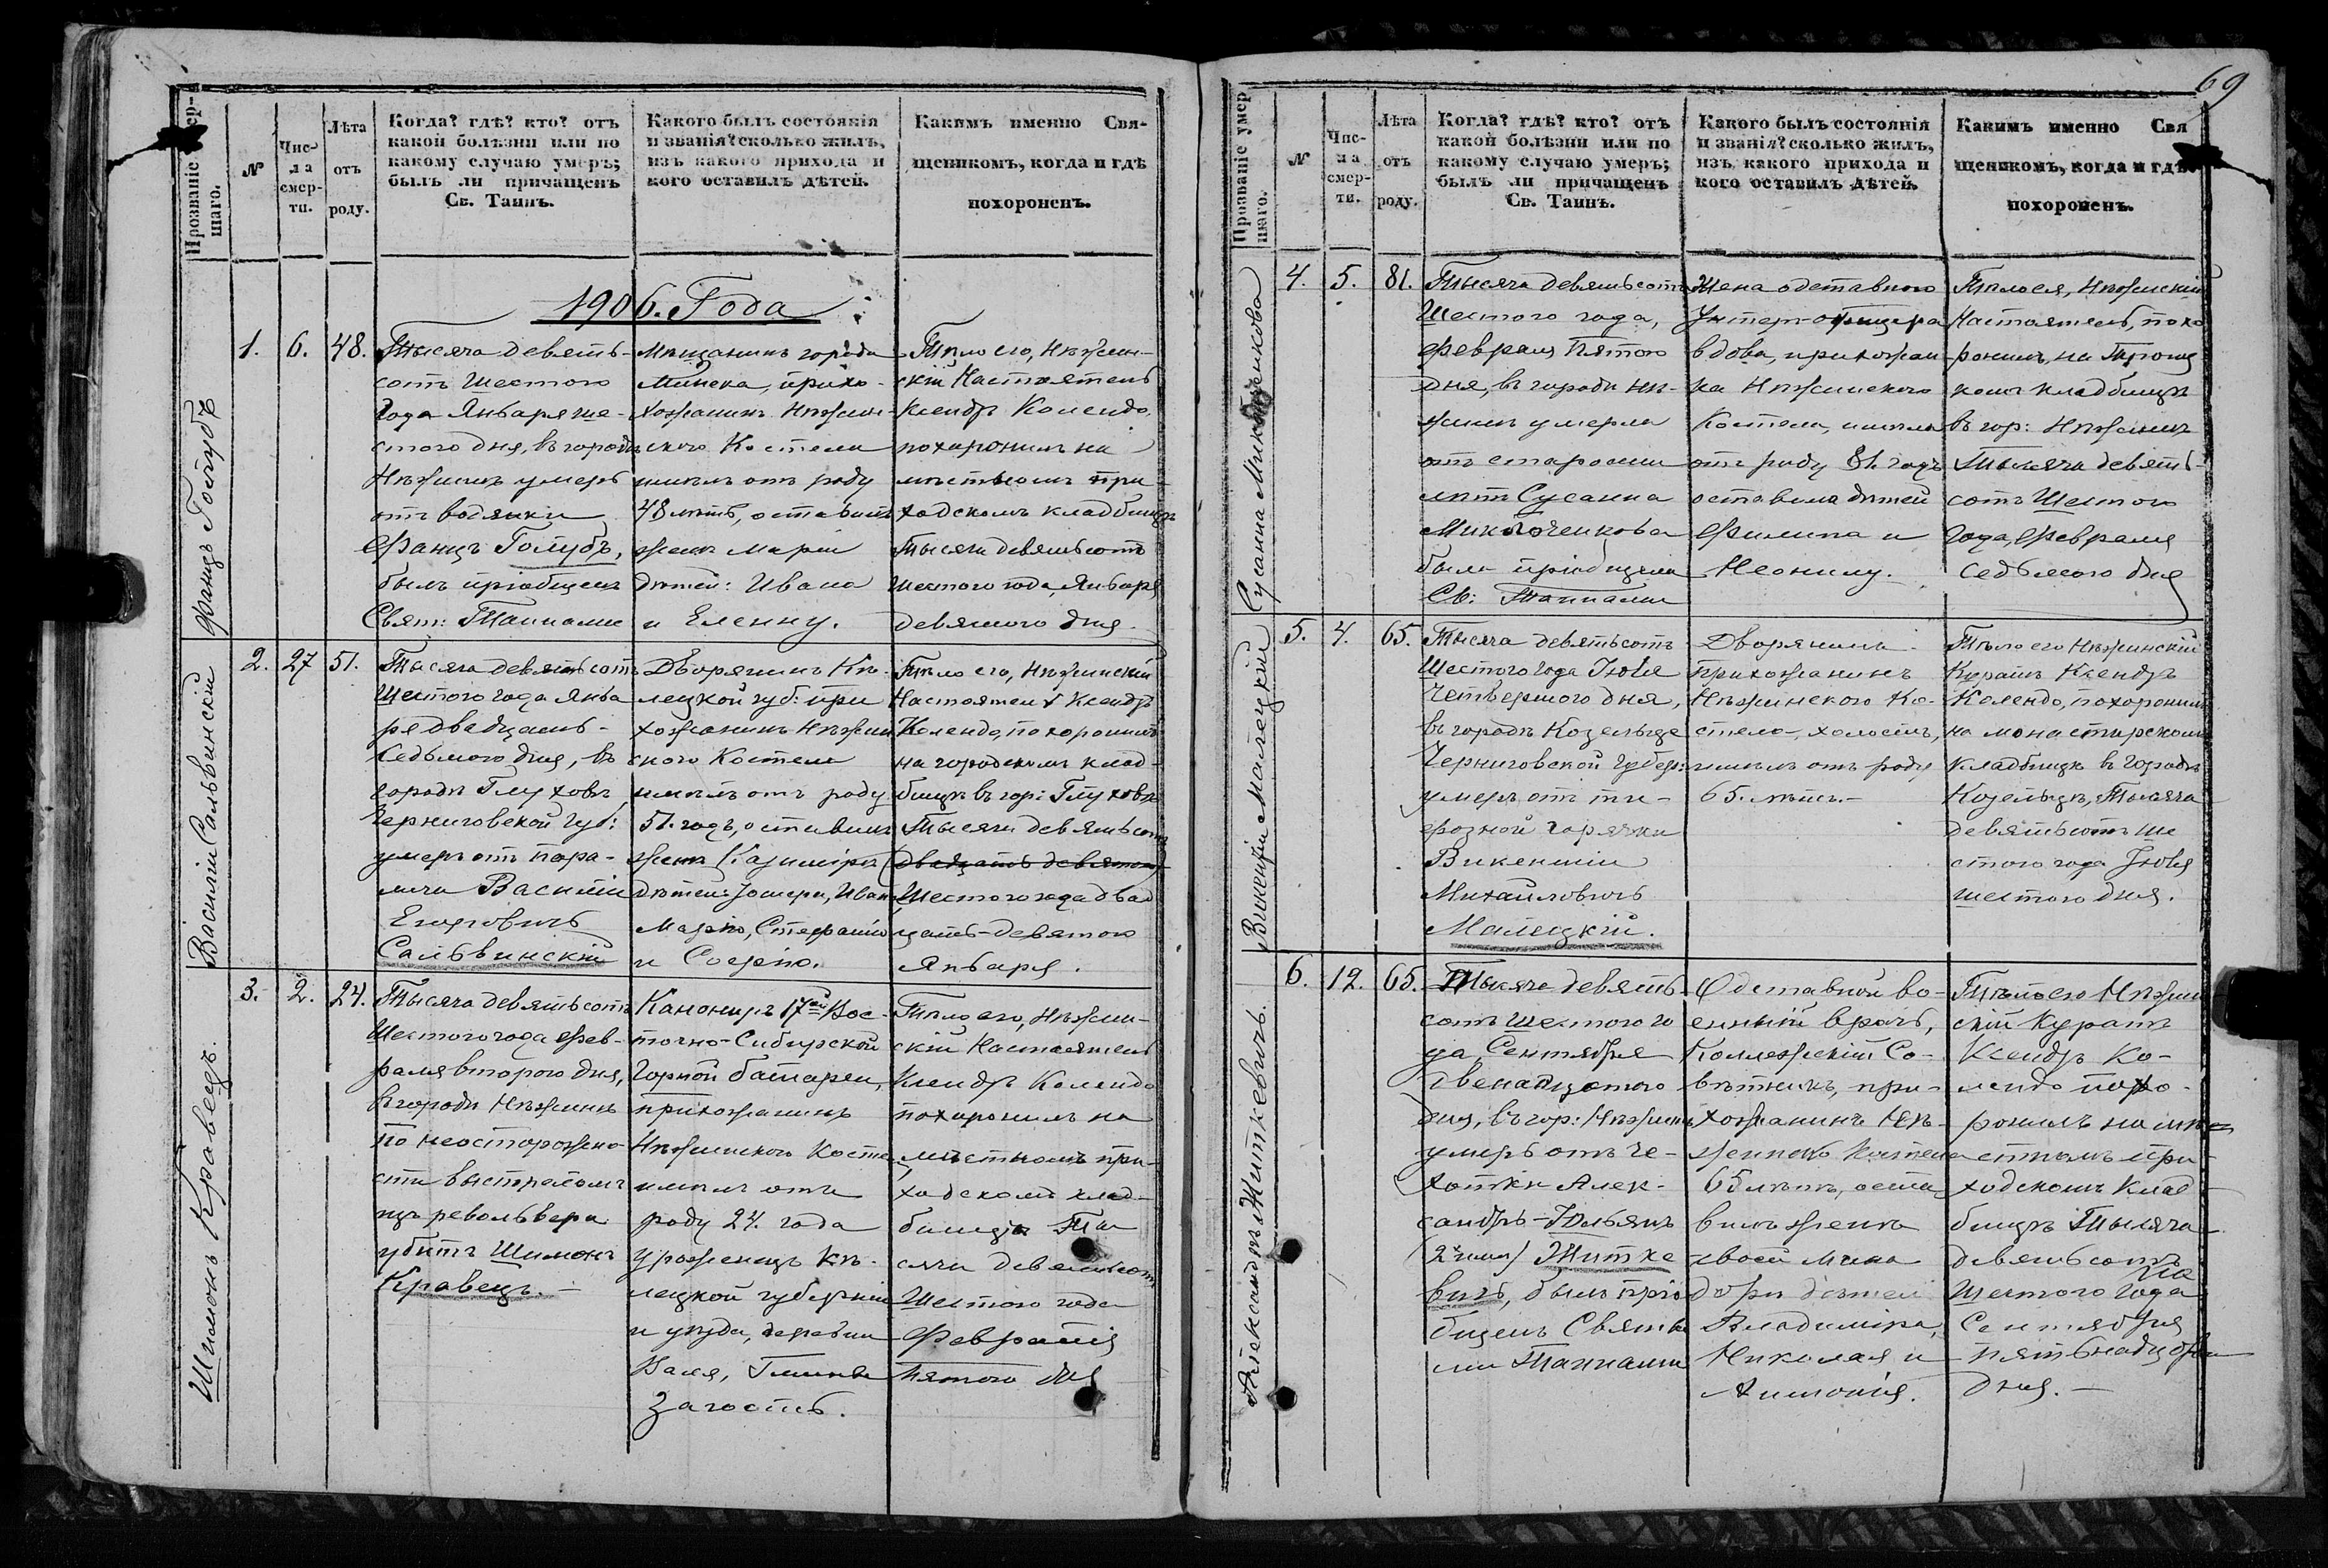 69
Прозваніе умер-
шаго.
№
Чис-
ла
смер-
ти.
Лѣта
отъ
роду.
Когда? гдѣ? кто? отъ
какой болѣзни или по
какому случаю умеръ;
былъ ли причащенъ
Св. Таинъ.
Какого былъ состоянія
и званія? сколько жилъ,
изъ какого прихода и
кого оставилъ дѣтей.
Какимъ именно Свя-
щенникомъ, когда и гдѣ
похороненъ.
1906. Года
Францъ Голубъ
1.
6.
48.
Тысяча девять-
сотъ Шестого
Года Января ше-
стого дня, въ городѣ
Нѣжинѣ умеръ
отъ водянки
Францъ Голубъ,
былъ пріобщенъ
Свят: Тайнами
Мѣщанинъ города
Минска, прихо-
хожанинъ Нѣжин-
ского Костела
имѣлъ отъ роду
48 лѣтъ, оставилъ
жену Марію
дѣтей: Ивана
и Елену.
Тѣло его, Нѣжин-
скій Настоятель
Ксендзъ Колендо,
похоронилъ на
мѣстномъ при-
ходскомъ кладбищѣ
Тысяча девятьсотъ
шестого года, Января
девятого дня.
Василій Сальвинскій
2.
27
51.
Тысяча девятьсотъ
Шестого года Янва
ря двадцать-
Седьмого дня, въ
городѣ Глуховѣ
Черниговской Губ:
умеръ отъ пара-
лича Василій
Егоровичъ
Сальвинскій
Дворянинъ Кѣ-
лецкой губ: при
хожанинъ Нѣжин
ского Костела
имѣлъ отъ роду
51. годъ, оставилъ
жену Казиміру
дѣтей: Іосифа, Ивана
Марію, Стефанію
и Софію.
Тѣло его, Нѣжинскій
Настоятель Ксендзъ
Колендо, похоронилъ
на городскомъ клад-
бищѣ въ гор: Глуховѣ
Тысяча девятьсотъ
двадцать девятого
Шестого года двад
цать-девятого
Января.
Шимонъ Кравецъ.
3.
2.
24.
Тысяча девятьсотъ
Шестого года Фев-
раля второго дня,
въ городѣ Нѣжинѣ
по неосторожно-
сти выстрѣломъ
изъ револьвера
убитъ Шимонъ
Кравецъ. -
Канониръ 17ой Вос-
точно-Сибирской
Горной батареи,
прихожанинъ
Нѣжинского Костела,
имѣлъ отъ
роду 24. года
уроженецъ Кѣ-
лецкой губерніи
и уѣзда, деревни
Гмины
Загость.
Тѣло его, Нѣжин-
скій Настоятель
Ксендзъ Колендо
похоронилъ на
мѣстномъ при-
ходскомъ клад-
бищѣ Ты
сяча девятьсотъ
Шестого года
Февраля
пятого дня
Прозваніе умер
шаго.
№
Чис-
ла
смер-
ти.
Лѣта
отъ
роду.
Когда? гдѣ? кто? отъ
какой болѣзни или по
какому случаю умеръ;
былъ ли причащенъ
Св. Таинъ.
Какого былъ состоянія
и званія? сколько жилъ,
изъ какого прихода и
кого оставилъ дѣтей.
Какимъ именно Свя
щенникомъ, когда и гдѣ
похороненъ.
Сусанна
4.
5.
81.
Тысяча девятьсотъ
Шестого года,
Февраля Пятого
дня, въ городѣ Нѣ-
жинѣ умерла
отъ старости
лѣтъ Сусанна
была пріобщена
Св: Тайнами
Жена отставного
Унтеръ-офицера
вдова, прихожан-
ка Нѣжинского
Костела, имѣла
отъ роду 81. годъ
оставила дѣтей
Филипа и
Неонилу.
Тѣло ея, Нѣжинскій
Настоятель, похо
ронилъ, на Троиц
комъ кладбищѣ
въ гор: Нѣжинѣ
Тысяча девять-
сотъ Шестого
Года, Февраля
седьмого дня
Викентій Малецкій
5.
4.
65.
Тысяча девятьсотъ
Шестого года Іюля
Четвертого дня,
въ городѣ Козельце
Черниговской Губер:
умеръ отъ ти-
фозной горячки
Викентій
Михайловичъ
Малецкій.
Дворянинъ
прихожанинъ
Нѣжинского Ко-
стела, холостъ,
имѣлъ отъ роду
65. лѣтъ. -
Тѣло его Нѣжинскій
Куратъ Ксендзъ
Колендо, похоронилъ
на монастирскомъ
Кладбищѣ въ Городѣ
Козельцѣ, Тысяча
девятьсотъ Ше
стого года Іюля
шестого дня.
Александръ Житкевичъ.
6.
12.
65.
Тысяча девять-
сотъ Шестого го
да, Сентября
Двенадцатого
дня, въ гор: Нѣжинѣ
умеръ отъ че-
хотки Алек-
сандръ-Юльянъ
(2хъ имя) Житке
вичъ, былъ пріо
бщенъ Святы
ми Тайнами
Отставной во-
енный врачъ,
Коллежскій Со-
вѣтникъ, при-
хожанинъ Нѣ-
жинского Костела
65 лѣтъ, оста
вилъ жену
дѣтей
Владиміра,
Николая и
Антонія.
Тѣло его Нѣжин
скій Куратъ
Ксендзъ Ко-
лендо похо-
ронилъ на мѣ
стномъ при-
ходскомъ Клад
бищѣ Тысяча
девятьсотъ
Шестого Года
Сентября
пятьнадцатого
дня. -